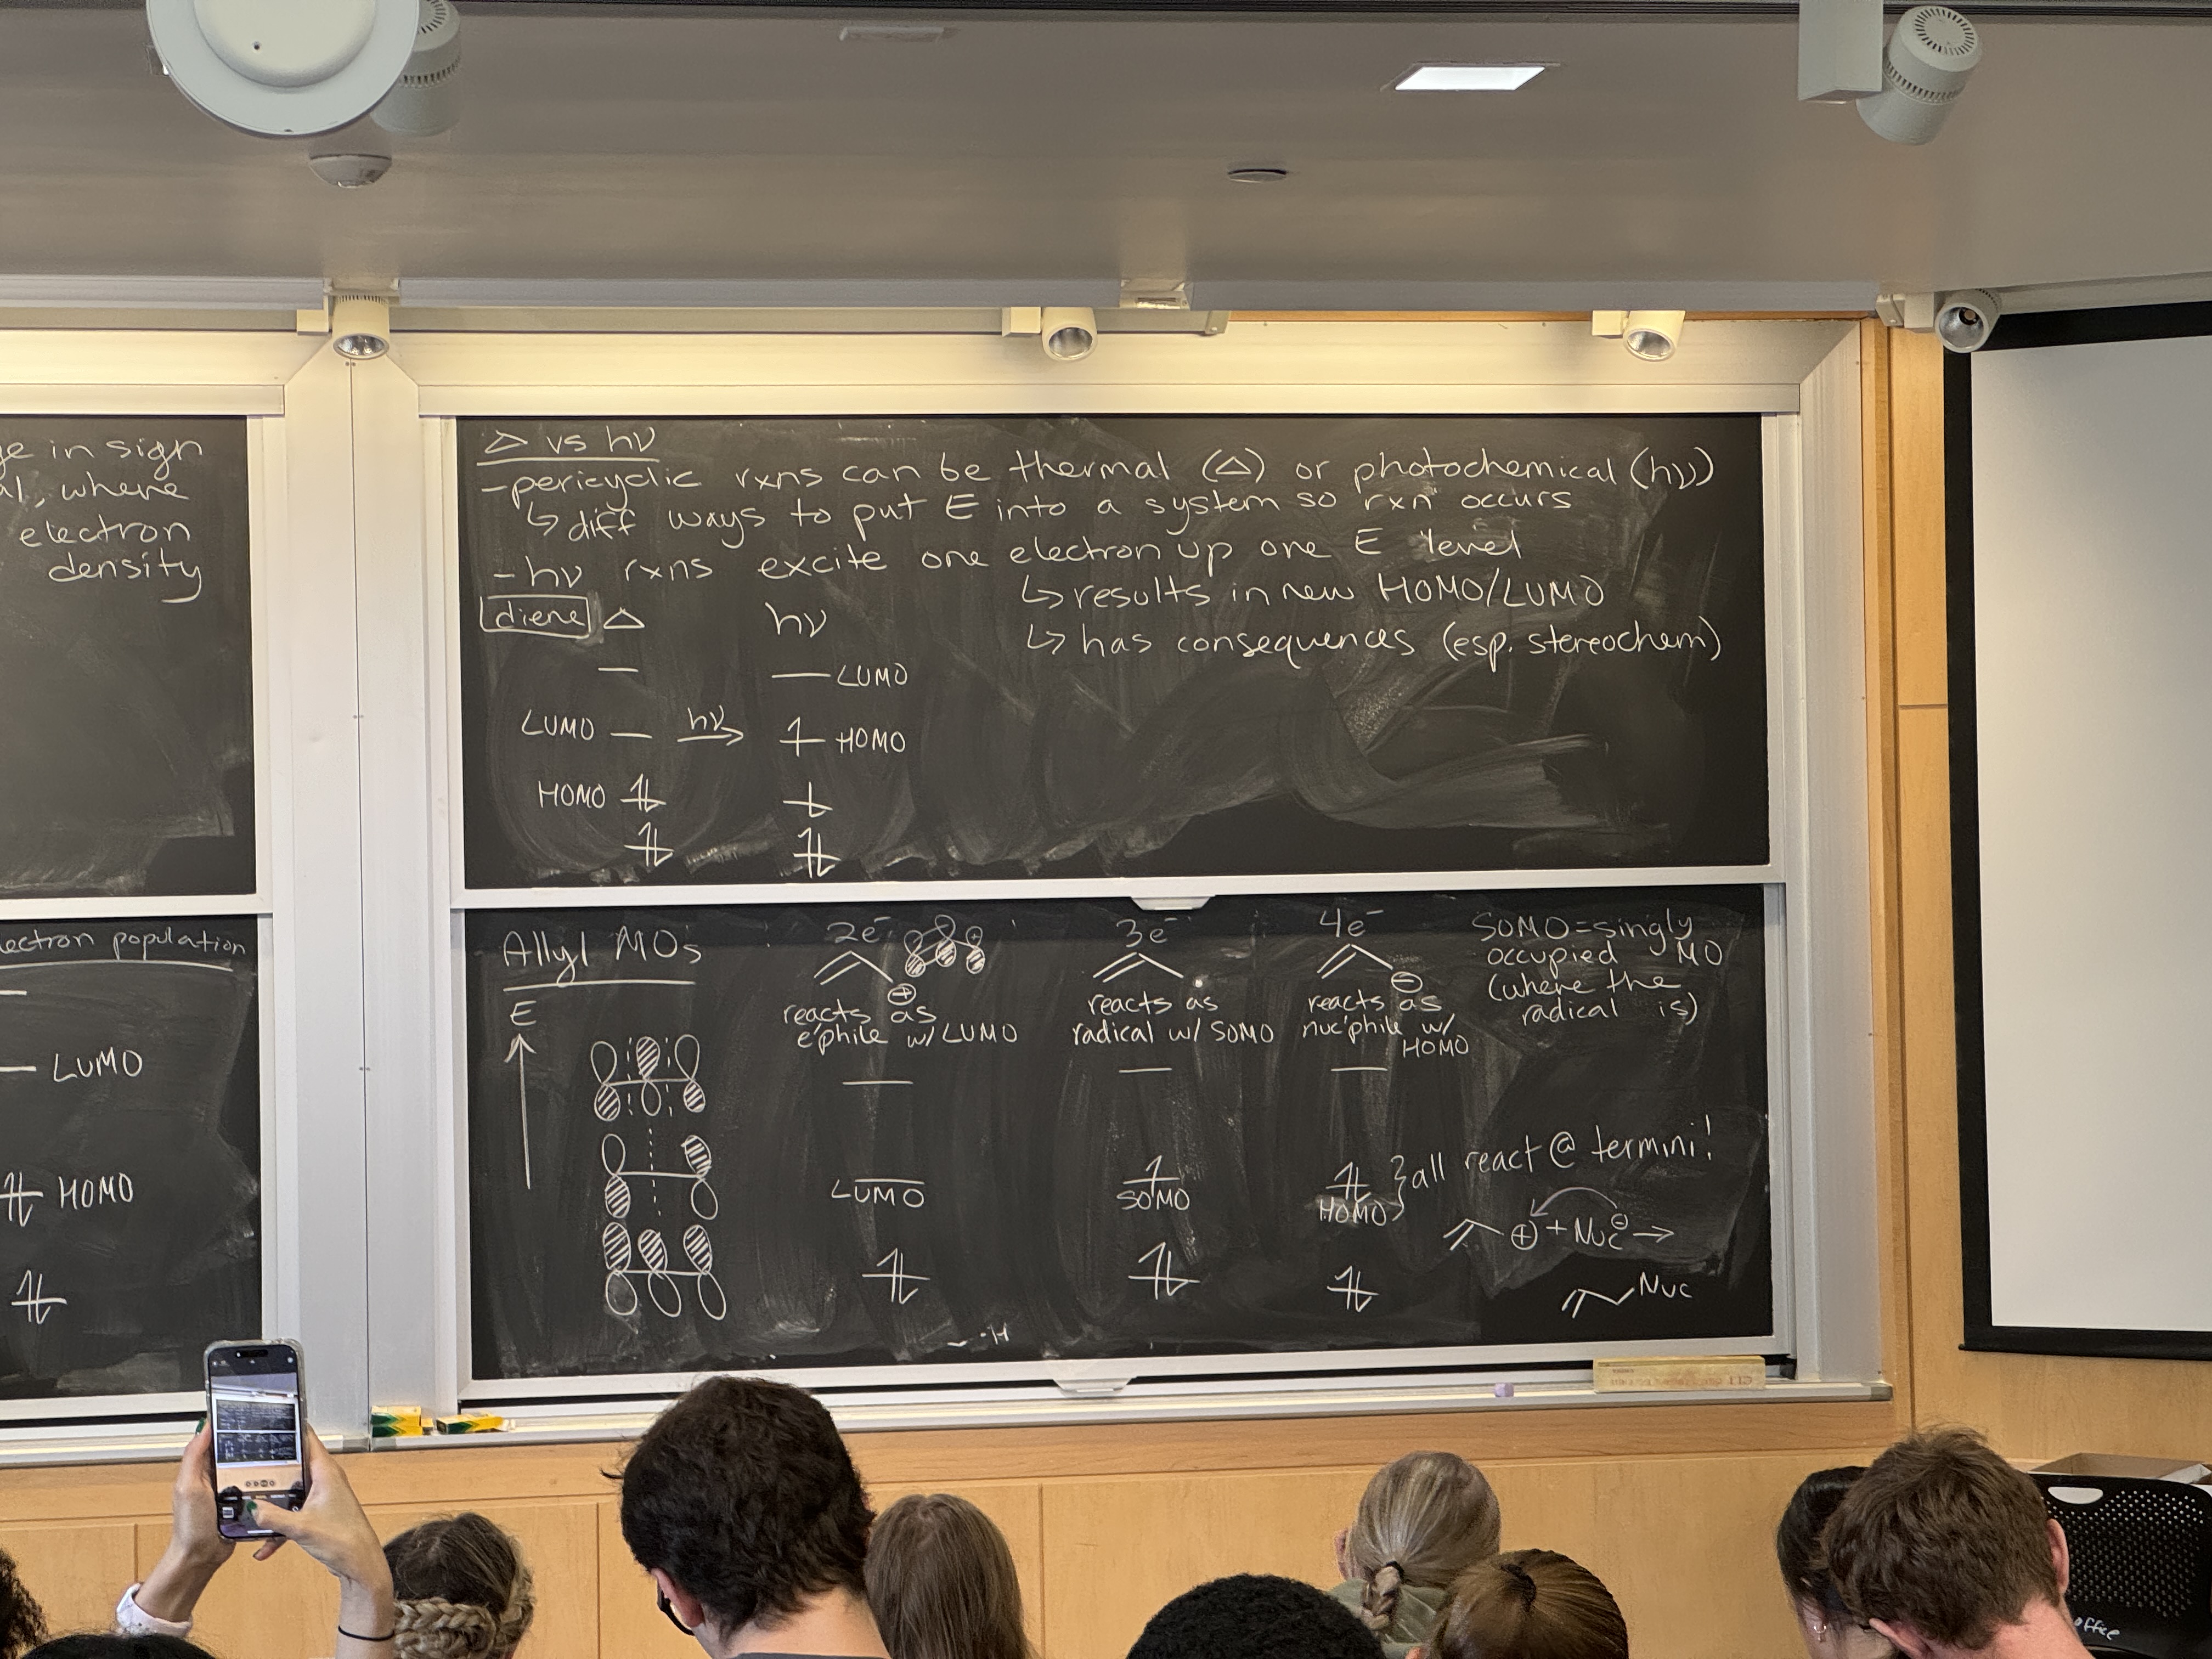 ge in sign
al, where
electron
density
lectron population
LUMO
HOMO
Δ vs hν
- pericyclic rxns can be thermal (Δ) or photochemical (hν)
↳ diff ways to put E into a system so rxn occurs
- hν rxns excite one electron up one E level
↳ results in new HOMO/LUMO
↳ has consequences (esp. stereochem)
diene Δ hν
LUMO
LUMO hν→ HOMO
HOMO
Allyl MOs
E
2e⁻
⊕
reacts as
e'phile w/ LUMO
LUMO
3e⁻
reacts as
radical w/ SOMO
SOMO
4e⁻
⊖
reacts as
nuc'phile w/
HOMO
HOMO
SOMO = singly
occupied MO
(where the
radical is)
} all react @ termini!
⊕ + Nuc⊖ →
Nuc
office